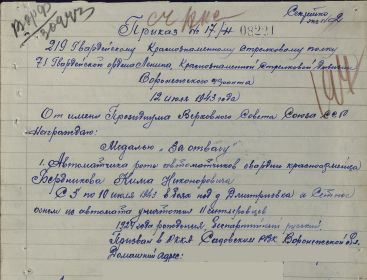 Секретно
экз. №2
Приказ № 17/н 08221
219 Гвардейскому Краснознаменному стрелковому полку
71 Гвардейской ордена Ленина Краснознаменной стрелковой дивизии
Воронежского фронта
12 июля 1943 года
От имени Президиума Верховного Совета Союза ССР
награждаю:
Медалью "За отвагу"
1. Автоматчика роты автоматчиков гвардии красноармейца
Бердникова Никоноровича
С 5 по 10 июля 1943 в боях под д. Дмитриевка и
огнем из автомата уничтожил 11 гитлеровцев
1924 года рождения беспартийный русский
Призван в РККА Садовским РВК Воронежской обл.
Домашний адрес: